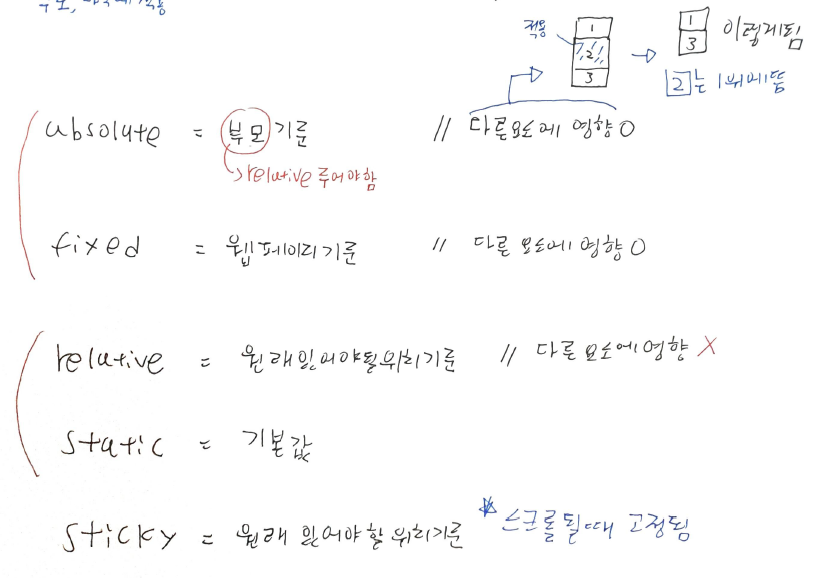 적용
1
2
3
1
3
이렇게됨
2는 1위에뜸
absolute = 부모기준 // 다른요소에 영향 O
relative 주어야함
fixed = 웹페이지기준 // 다른 요소에 영향 O
relative = 원래있어야될위치기준 // 다른 요소에영향 X
static = 기본값
sticky = 원래 있어야할 위치기준 * 스크롤될때 고정됨